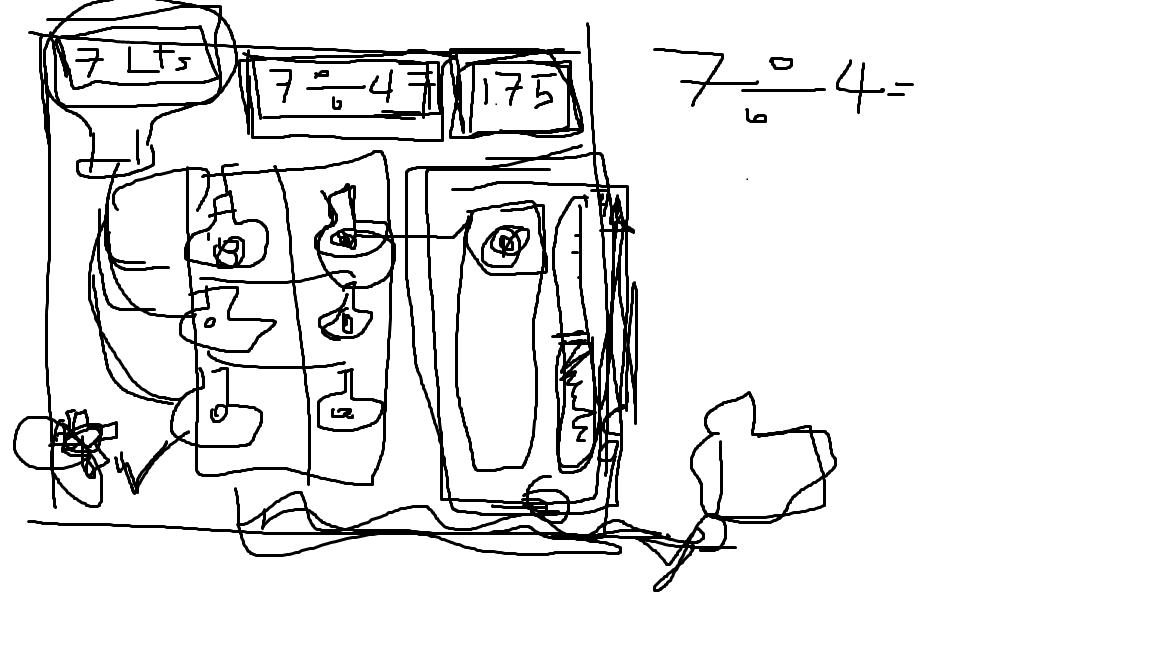 7 Lts
7 ÷ 4 =
1.75
7 ÷ 4 =